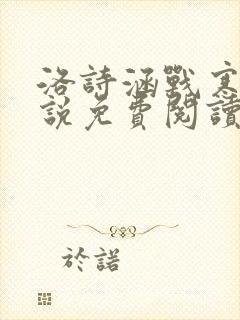 洛詩涵戰寒
說免費閱讀
於諾